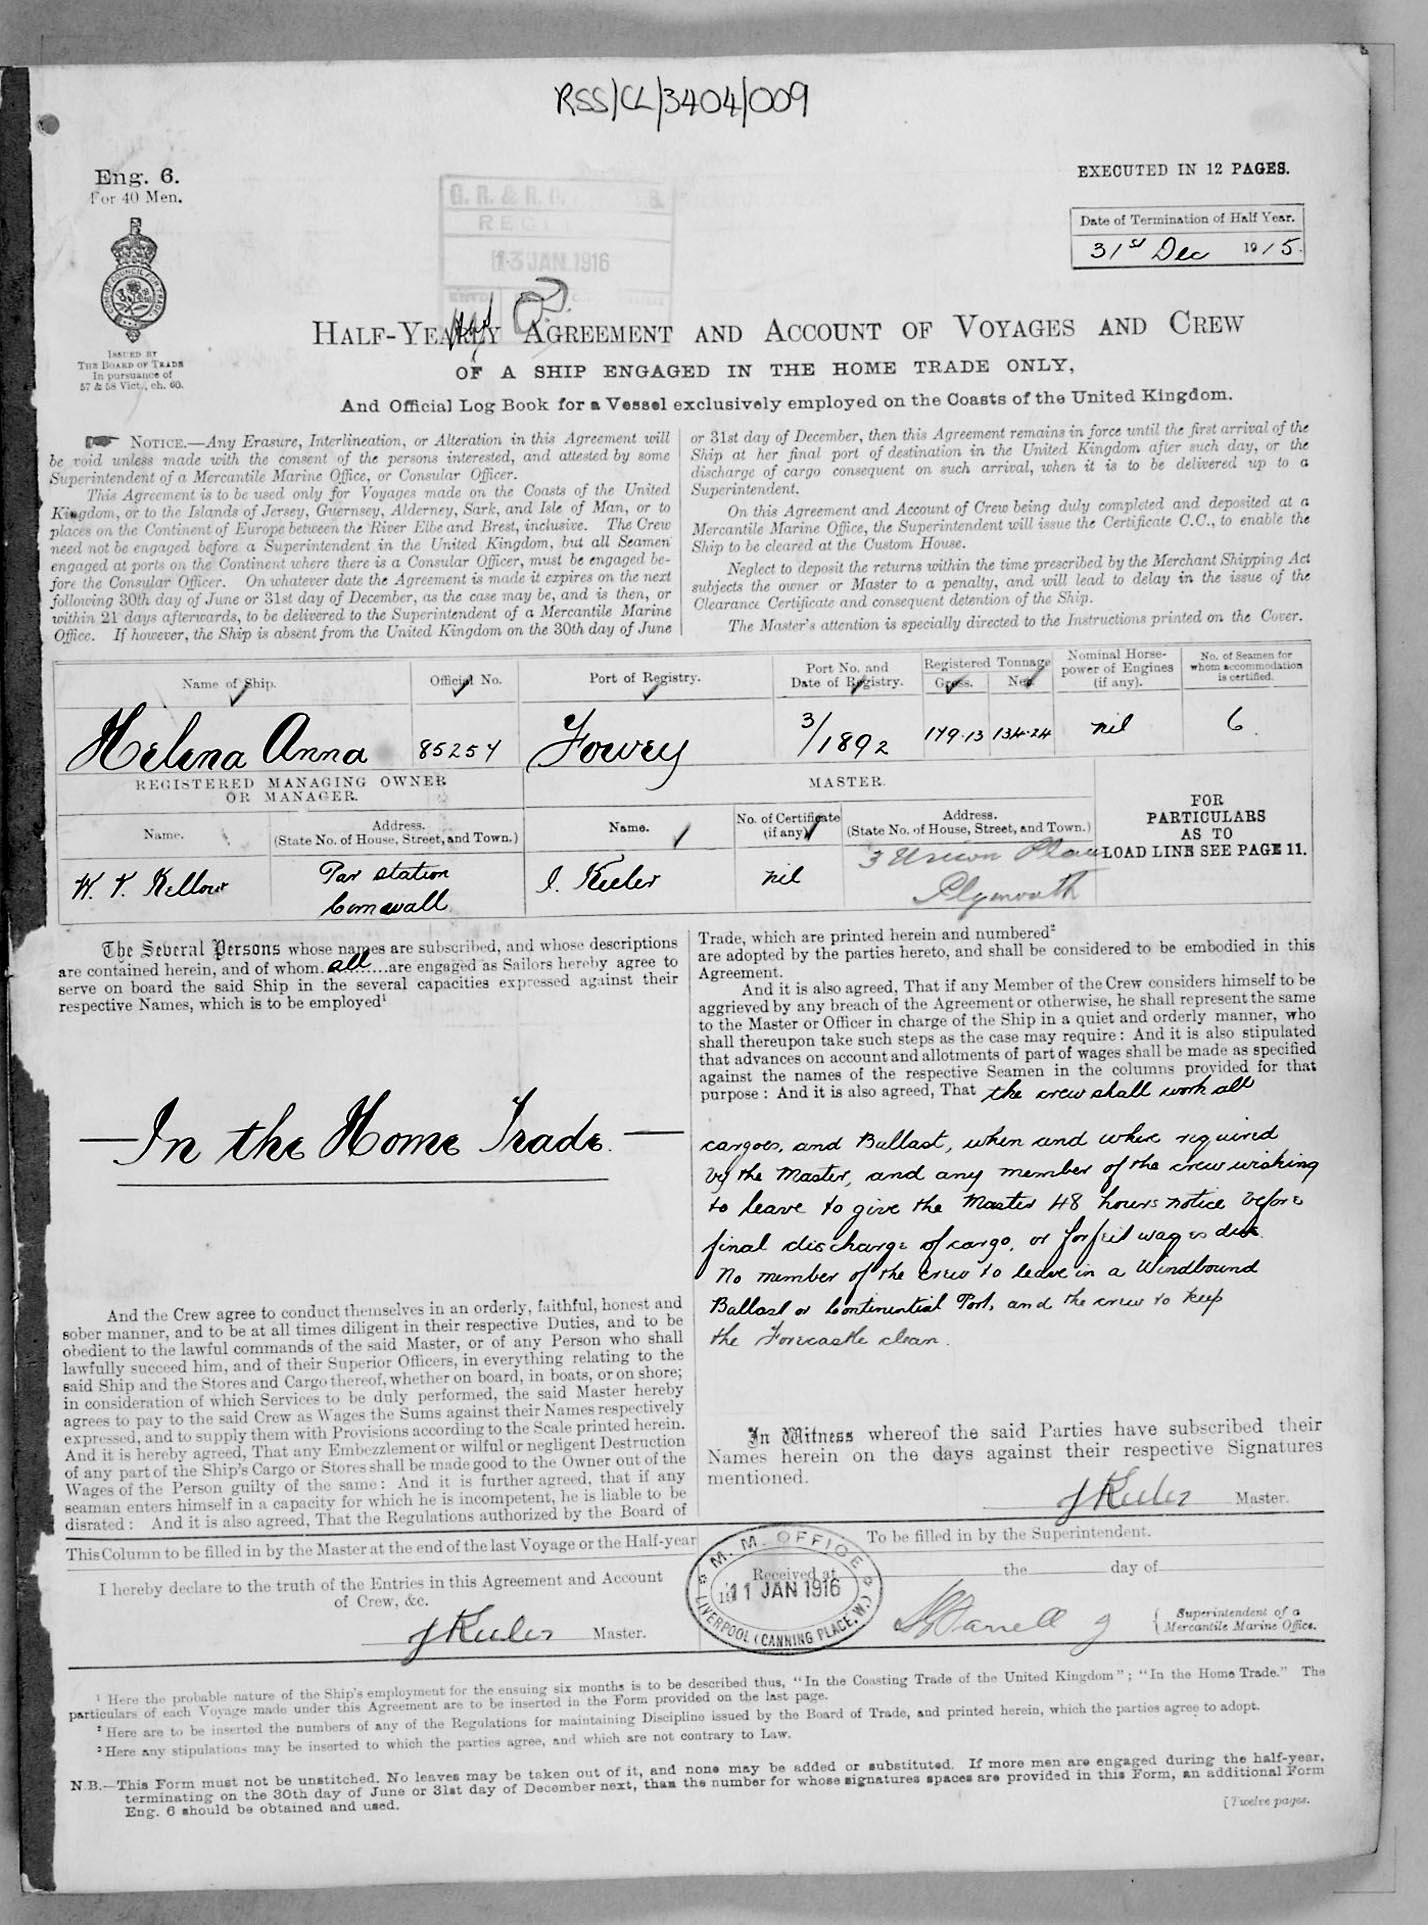 RSS/CL/3404/009
Eng. 6.
For 40 Men.
EXECUTED IN 12 PAGES.
Date of Termination of Half Year.
31st Dec 1915.
G. R. & R. G.
13 JAN 1916
ISSUED BY
THE BOARD OF TRADE
In pursuance of
57 & 58 Vict., ch. 60.
HALF-YEARLY AGREEMENT AND ACCOUNT OF VOYAGES AND CREW
OF A SHIP ENGAGED IN THE HOME TRADE ONLY,
And Official Log Book for a Vessel exclusively employed on the Coasts of the United Kingdom.
NOTICE.—Any Erasure, Interlineation, or Alteration in this Agreement will
be void unless made with the consent of the persons interested, and attested by some
Superintendent of a Mercantile Marine Office, or Consular Officer.
This Agreement is to be used only for Voyages made on the Coasts of the United
Kingdom, or to the Islands of Jersey, Guernsey, Alderney, Sark, and Isle of Man, or to
places on the Continent of Europe between the River Elbe and Brest, inclusive. The Crew
need not be engaged before a Superintendent in the United Kingdom, but all Seamen
engaged at ports on the Continent where there is a Consular Officer, must be engaged be-
fore the Consular Officer. On whatever date the Agreement is made it expires on the next
following 30th day of June or 31st day of December, as the case may be, and is then, or
within 21 days afterwards, to be delivered to the Superintendent of a Mercantile Marine
Office. If however, the Ship is absent from the United Kingdom on the 30th day of June
or 31st day of December, then this Agreement remains in force until the first arrival of the
Ship at her final port of destination in the United Kingdom after such day, or the
discharge of cargo consequent on such arrival, when it is to be delivered up to a
Superintendent.
On this Agreement and Account of Crew being duly completed and deposited at a
Mercantile Marine Office, the Superintendent will issue the Certificate C.C., to enable the
Ship to be cleared at the Custom House.
Neglect to deposit the returns within the time prescribed by the Merchant Shipping Act
subjects the owner or Master to a penalty, and will lead to delay in the issue of the
Clearance Certificate and consequent detention of the Ship.
The Master's attention is specially directed to the Instructions printed on the Cover.
Name of Ship.
Official No.
Port of Registry.
Port No. and
Date of Registry.
Registered Tonnage
Gross.
Net.
Nominal Horse-
power of Engines
(if any).
No. of Seamen for
whom accommodation
is certified.
Helena Anna
85254
Fowey
3/1892
179·13
134·24
nil
6
REGISTERED MANAGING OWNER
OR MANAGER.
MASTER.
Name.
Address.
(State No. of House, Street, and Town.)
Name.
No. of Certificate
(if any)
Address.
(State No. of House, Street, and Town.)
FOR
PARTICULARS
AS TO
LOAD LINE SEE PAGE 11.
W. T. Kellow
Par station
Cornwall
J. Keeler
nil
3 Union Place
Plymouth
The Several Persons whose names are subscribed, and whose descriptions
are contained herein, and of whom all are engaged as Sailors hereby agree to
serve on board the said Ship in the several capacities expressed against their
respective Names, which is to be employed¹
—In the Home Trade.—
And the Crew agree to conduct themselves in an orderly, faithful, honest and
sober manner, and to be at all times diligent in their respective Duties, and to be
obedient to the lawful commands of the said Master, or of any Person who shall
lawfully succeed him, and of their Superior Officers, in everything relating to the
said Ship and the Stores and Cargo thereof, whether on board, in boats, or on shore;
in consideration of which Services to be duly performed, the said Master hereby
agrees to pay to the said Crew as Wages the Sums against their Names respectively
expressed, and to supply them with Provisions according to the Scale printed herein.
And it is hereby agreed, That any Embezzlement or wilful or negligent Destruction
of any part of the Ship's Cargo or Stores shall be made good to the Owner out of the
Wages of the Person guilty of the same: And it is further agreed, that if any
seaman enters himself in a capacity for which he is incompetent, he is liable to be
disrated: And it is also agreed, That the Regulations authorized by the Board of
Trade, which are printed herein and numbered²
are adopted by the parties hereto, and shall be considered to be embodied in this
Agreement.
And it is also agreed, That if any Member of the Crew considers himself to be
aggrieved by any breach of the Agreement or otherwise, he shall represent the same
to the Master or Officer in charge of the Ship in a quiet and orderly manner, who
shall thereupon take such steps as the case may require: And it is also stipulated
that advances on account and allotments of part of wages shall be made as specified
against the names of the respective Seamen in the columns provided for that
purpose: And it is also agreed, That the crew shall work all
cargoes, and Ballast, when and where required
by the Master, and any member of the crew wishing
to leave to give the Master 48 hours notice before
final discharge of cargo, or forfeit wages due.
No member of the crew to leave in a Windbound
Ballast or Continential Port, and the crew to keep
the Forecastle clean.
In Witness whereof the said Parties have subscribed their
Names herein on the days against their respective Signatures
mentioned.
J Keeler Master.
This Column to be filled in by the Master at the end of the last Voyage or the Half-year
I hereby declare to the truth of the Entries in this Agreement and Account
of Crew, &c.
J Keeler Master.
To be filled in by the Superintendent.
Received at
the day of
M. M. OFFICE
11 JAN 1916
LIVERPOOL (CANNING PLACE, W.)
Superintendent of a
Mercantile Marine Office.
¹ Here the probable nature of the Ship's employment for the ensuing six months is to be described thus, "In the Coasting Trade of the United Kingdom"; "In the Home Trade." The
particulars of each Voyage made under this Agreement are to be inserted in the Form provided on the last page.
² Here are to be inserted the numbers of any of the Regulations for maintaining Discipline issued by the Board of Trade, and printed herein, which the parties agree to adopt.
³ Here any stipulations may be inserted to which the parties agree, and which are not contrary to Law.
N.B.—This Form must not be unstitched. No leaves may be taken out of it, and none may be added or substituted. If more men are engaged during the half-year,
terminating on the 30th day of June or 31st day of December next, than the number for whose signatures spaces are provided in this Form, an additional Form
Eng. 6 should be obtained and used.
[Twelve pages.